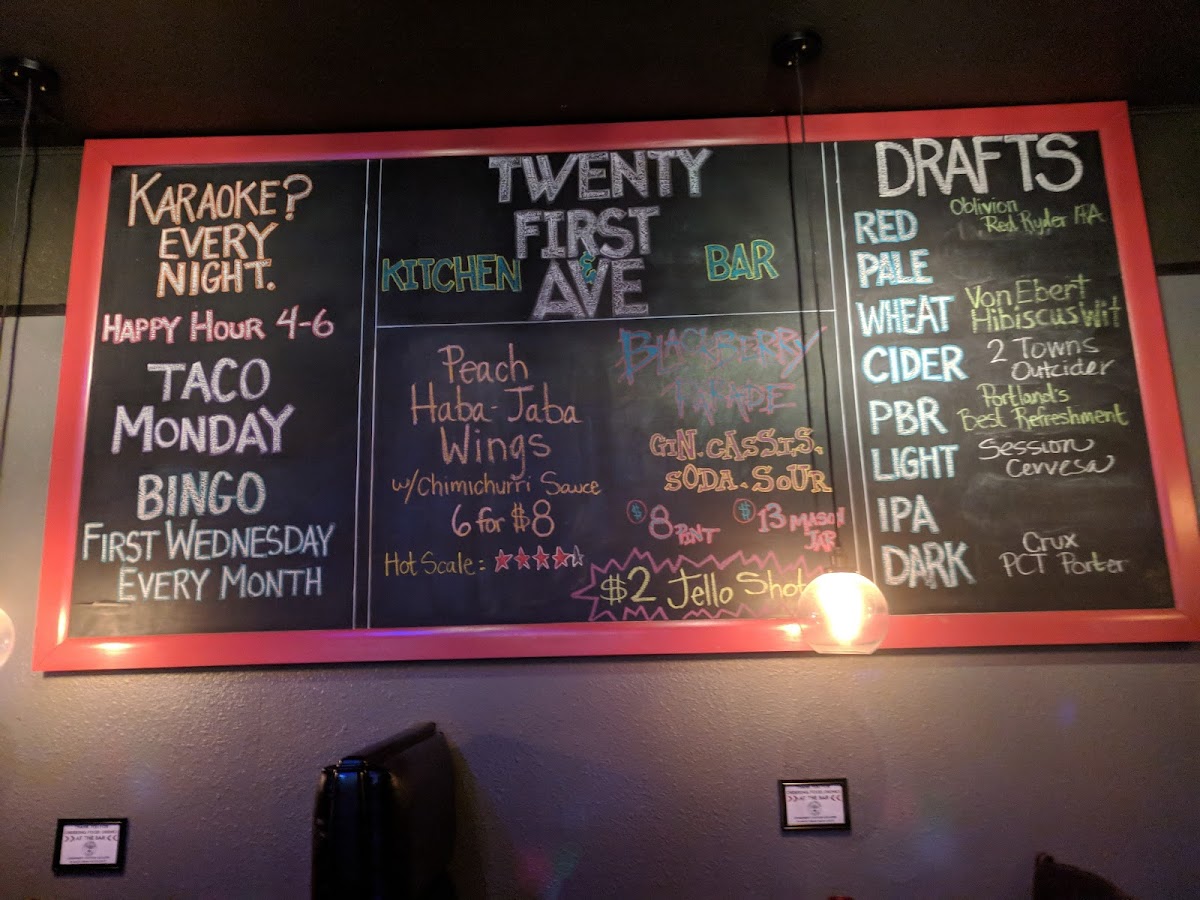 KARAOKE?
EVERY
NIGHT.
HAPPY HOUR 4-6
TACO
MONDAY
BINGO
FIRST WEDNESDAY
EVERY MONTH
TWENTY
FIRST
KITCHEN & BAR
AVE
Peach
Haba-Jaba
Wings
w/Chimichurri Sauce
6 for $8
Hot Scale:
BLACKBERRY
GIN. CASSIS.
SODA. SOUR
$8 PINT $13 MASON
JAR
$2 Jello Shot
DRAFTS
RED Oblivion
Red Ryder
PALE
WHEAT Von Ebert
Hibiscus Wit
CIDER 2 Towns
Outcider
PBR Portland's
Best Refreshment
LIGHT Session
Cervesa
IPA
DARK Crux
PCT Porter
AT THE BAR
AT THE BAR